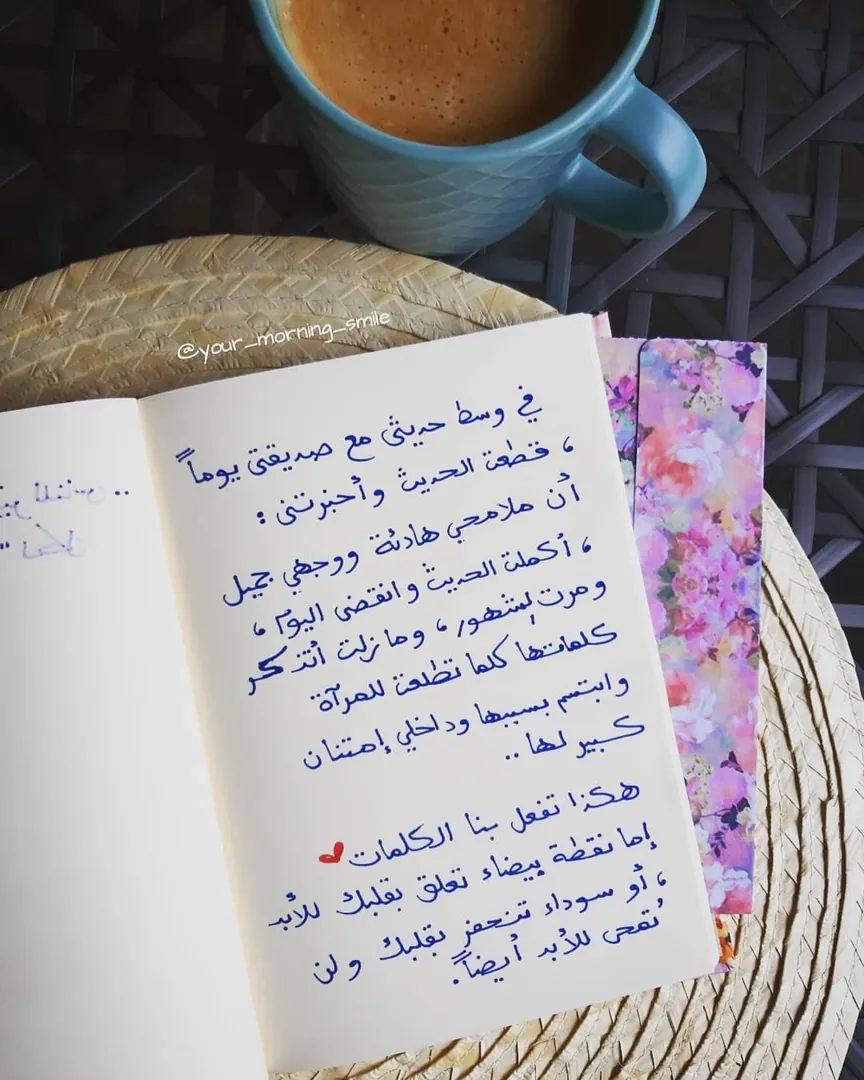 @your_morning_smile
في وسط حديثي مع صديقتي يوماً
، قطعت الحديث وأخبرتني :
أن ملامحي هادئة ووجهي جميل
، أكملت الحديث وانقضى اليوم ،
ومرت لشهور ، وما زلت أتذكر
كلماتها كلما تطلعت للمرآة
وابتسم بسببها وداخلي إمتنان
كبير لها ..
هكذا تفعل بنا الكلمات
إما نقطة بيضاء تعلق بقلبك للأبد
، أو سوداء تنحفر بقلبك ولن
تُمحى للأبد أيضاً.